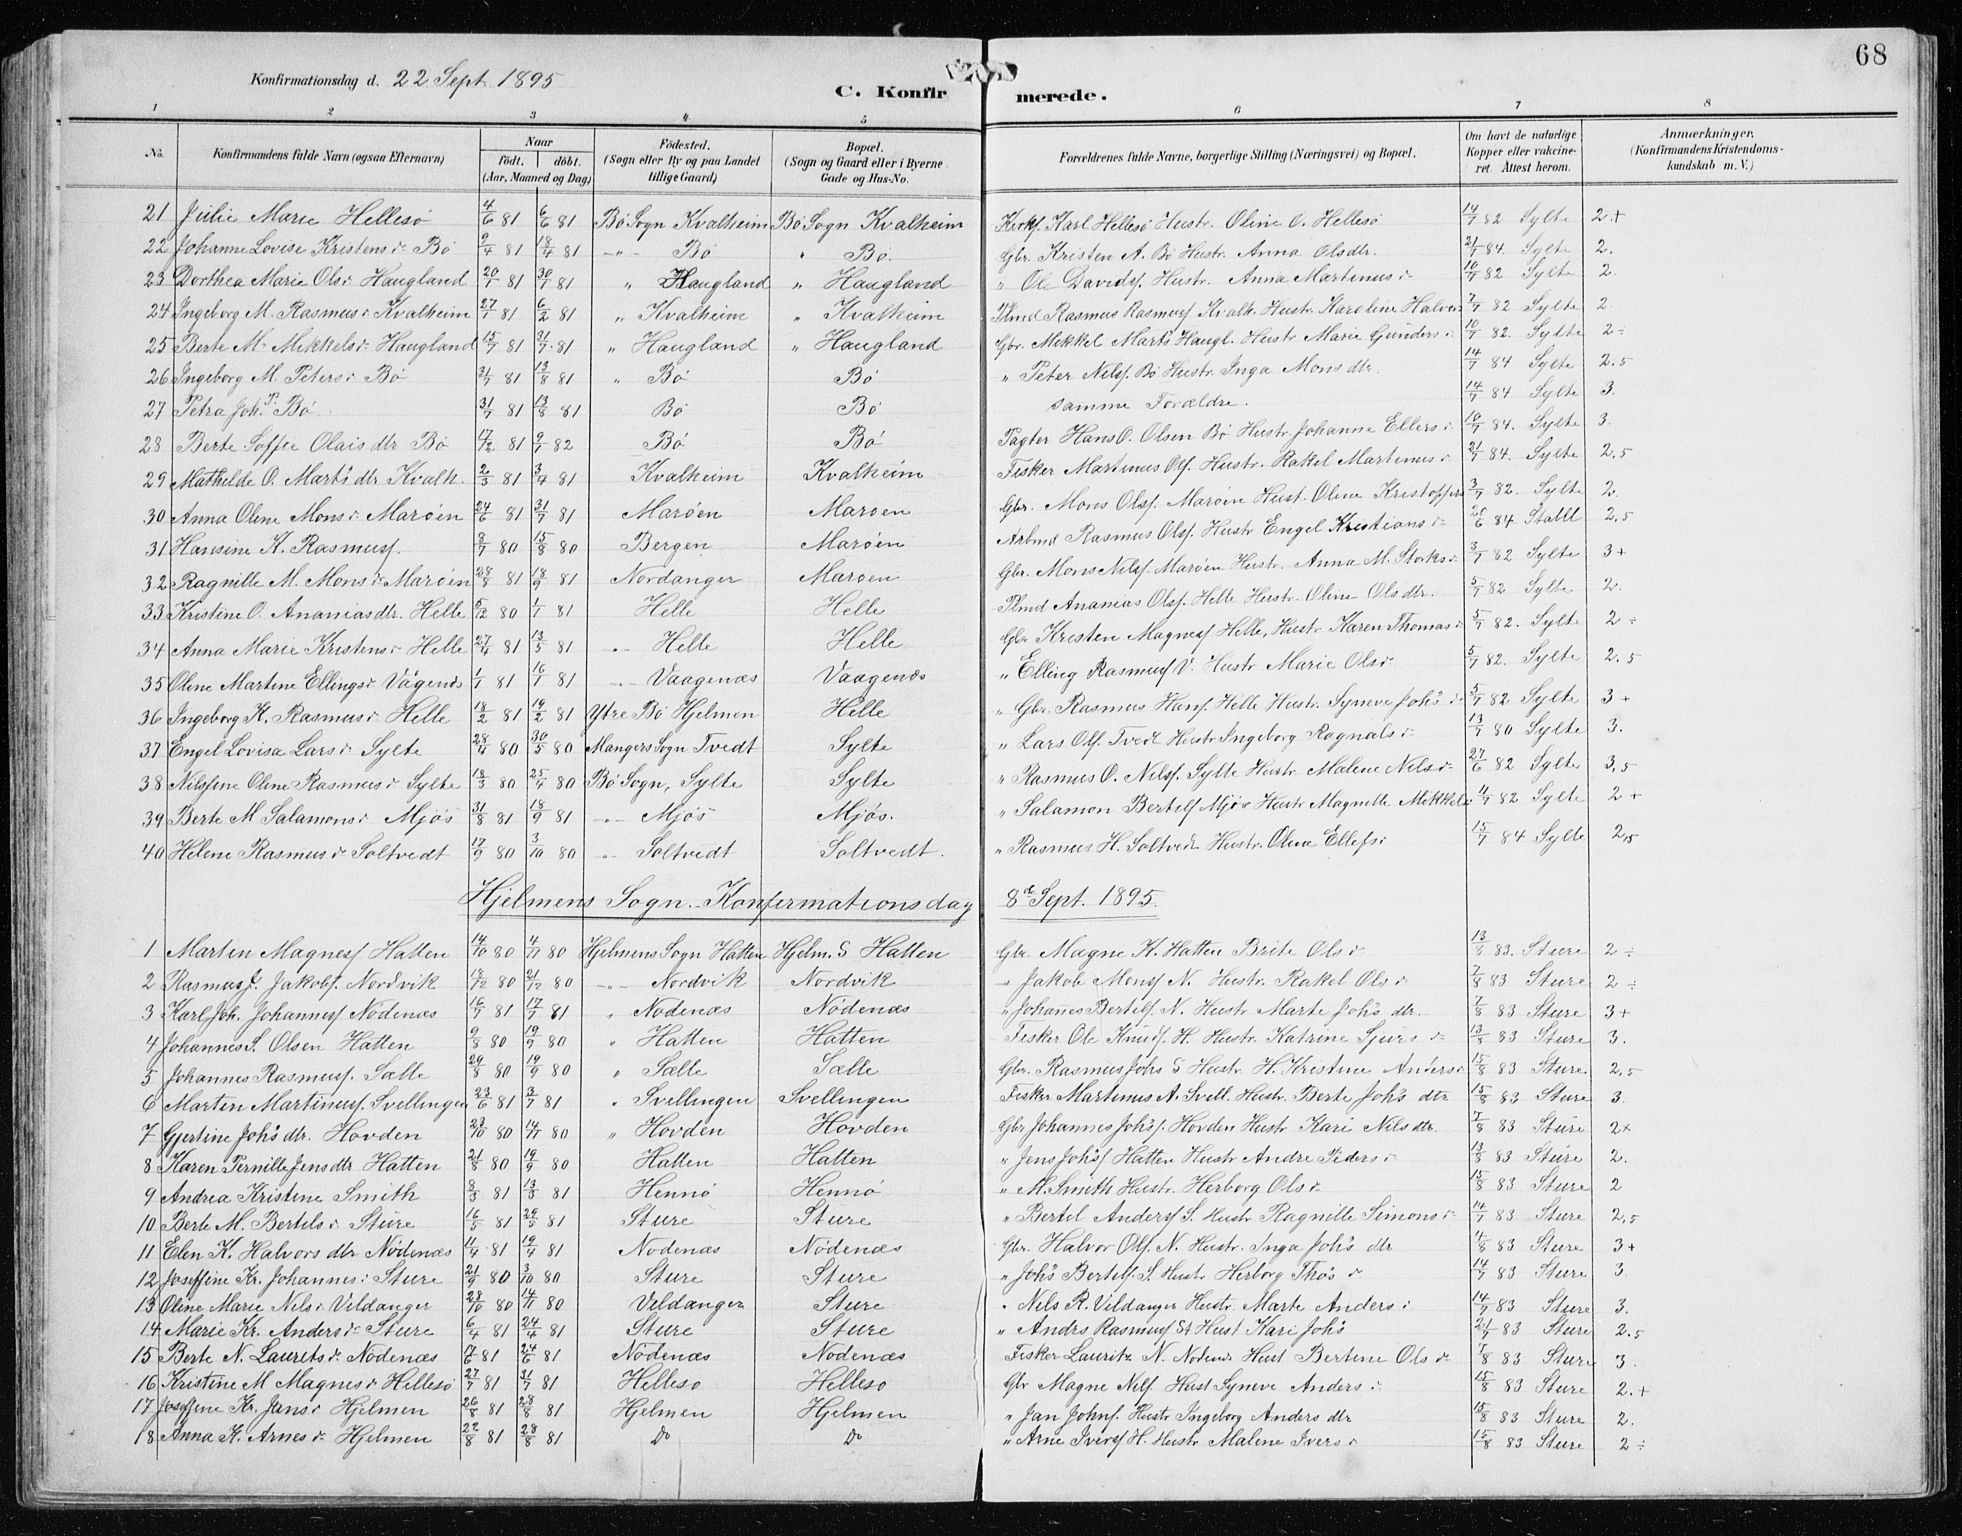 68
Konfirmationsdag d. 22 Sept. 1895
C. Konfirmerede.
1 2 3 4 5 6 7 8
No. Konfirmandens fulde Navn (ogsaa Efternavn) Naar født. døbt. (Aar, Maaned og Dag) Fødested. (Sogn eller By og paa Landet tillige Gaard) Bopæl. (Sogn og Gaard eller i Byerne Gade og Hus-No. Forældrenes fulde Navne, borgerlige Stilling (Næringsvei) og Bopæl. Om havt de naturlige Kopper eller vakcineret. Attest herom. Anmærkninger. (Konfirmandens Kristendomskundskab m. V.)
21 Julie Marie Hellesø 4/6 81 6/6 81 Bø Sogn Kvalheim Bø Sogn Kvalheim Karl Hellesø Hustr. Oline O. Hellesø 14/7 82 Sylte 2+
22 Johanne Lovise Kristensdr Bø 9/4 81 18/4 81 -"- Bø " Bø. Gbr. Kristen A. Bø Hustr. Anna Olsdtr. 21/7 84. Sylte 2.
23 Dorthea Marie Olsdr Haugland 20/7 81 30/7 81 " Haugland " Haugland " Ole Davids. Hustr. Anna Martinusdr 10/7 82 Sylte 2.
24 Ingeborg M. Rasmusdr Kvalheim 27/1 81 6/2 81 " Kvalheim " Kvalheim Plmd Rasmus Rasmuss Kvalh. Hustr. Karoline Halvor 7/7 82 Sylte 2
25 Berte M. Mikkelsdr Haugland 15/7 81 31/7 81 " Haugland " Haugland Gbr. Mikkel Marts Haugl. Hustr Marie Gundersdr 10/7 82. Sylte 2÷
26 Ingeborg M. Petersdr Bø 31/7 81 13/8 81 " Bø Bø " Peter Nilss. Bø Hustr. Inga Monsdtr. 14/7 84 Sylte 2.5
27 Petra Joh. P. Bø 31/7 81 13/8 81 Bø Bø samme Forældre. 14/7 84 Sylte 3.
28 Berte Soffie Olaisdtr Bø 17/12 81 9/1 82 Bø Bø Pagter Hans O. Olsen Bø Hustr Johanne Ellersdr 10/7 84. Sylte 3.
29 Mathilde O. Marts dtr Kvalh. 2/3 81 3/4 81 Kvalheim Kvalheim Fisker Martinus Ols. Hustr. Rakel Martinusdr 21/7 84. Sylte 2,5
30 Anna Oline Monsdr Marøen 24/6 81 31/7 81 Marøen Marøen Gbr. Mons Olss. Marøen Hust. Oline Kristoffers 3/7 82. Sylte 2.
31 Hansine K. Rasmuss. 8/7 80 15/8 80 Bergen Marøen Arbmd Rasmus Olss. Hustr Engel Kristiansdr 20/6 84 Stabl 2,5
32 Ragnille M. Monsdr Marøen 28/8 81 18/9 81 Nordanger Marøen Gbr. Mons Nilss. Marøen Hustr. Anna M. Storksdr 3/7 82 Sylte 3+
33 Kristine O. Ananiasdtr. Helle 5/12 80 1/1 81 Helle Helle Plmd Ananias Olss. Helle Hustr. Oline Olsdtr. 5/7 82 Sylte 2.
34 Anna Marie Kristensdr Helle 27/4 81 13/5 81 -"- Helle Helle Gbr Kristen Magness Helle, Hustr Karen Thomasdr 5/7 82. Sylte 2÷
35 Oline Martine Ellingsdr Vågenæs 1/7 81 16/7 81 -"- Vaagenæs Vaagenæs " Elling Rasmuss V. Hustr Marie Olsdr 5/7 82. Sylte 2.5
36 Ingeborg K. Rasmusdr Helle 18/2 81 19/2 81 Ytre Bø Hjelmen Helle " Gbr. Rasmus Hans. Helle Hustr. Syneve Johs dr 5/7 82 Sylte 3+
37 Engel Lovisa Larsdr Sylte 28/4 80 30/5 80 Mangers Sogn Tvedt Sylte " Lars Ols. Tvedt Hustr Ingeborg Ragnalsdr 13/7 80 Sylte 3.
38 Nilsine Oline Rasmusdr Sylte 18/3 80 25/4 80 Bø Sogn, Sylte Sylte " Rasmus O. Nilss. Sylte Hustr. Malene Nilsdr 27/6 82 Sylte 3,5
39 Berte M Salamonsdr Mjøs 31/8 81 18/9 81 -"- Mjøs Mjøs. " Salamon Bertels Mjøs Hustr Magnille Mikkels 4/7 82 Sylte 2+
40 Helene Rasmusdr Soltvedt 17/9 80 3/10 80 -"- Soltvedt Soltvedt. " Rasmus H. Soltvedt Hustr. Oline Ellefsdr 15/7 84 Sylte 2,5
Hjelmens Sogn. Konfirmationsdag 8de Sept. 1895.
1 Marten Magness Hatten 14/10 80 4/11 80 Hjelmens Sogn Hatten Hjelm. S Hatten Gbr. Magne K. Hatten Brite Olsdr 13/8 83. Sture 2÷
2 Rasmus J. Jakobs. Nordvik 18/12 80 21/12 80 -"- Nordvik Nordvik " Jakob Monss N. Hustr. Rakel Olsdr 7/8 83 Sture 2÷
3 Karl Joh. Johanness Nödenæs 16/7 81 17/7 81 " Nödenæs Nödenæs " Johannes Bertels. N. Hustr Marte Johs dtr. 7/8 83 Sture 3+
4 Johannes S. Olsen Hatten 9/8 80 19/9 80 " Hatten Hatten Fisker Ole Knuds. H. Hustr. Katrine Sjursdr 13/8 83 Sture 3.
5 Johannes Rasmuss. Sælle 29/8 80 19/9 80 " Sælle Sælle Gbr. Rasmus Johs S Hustr. H. Kristine Andersdr 15/8 83 Sture 2,5
6 Marten Martinuss. Svellingen 23/6 81 3/7 81 " Svellingen Svellingen Fisker Martinus A. Svell. Hustr. Berte Johs dtr 15/8 83 Sture 3.
7 Gjertine Johs dtr. Hovden 23/10 80 14/11 80 " Hovden Hovden Gbr Johannes Johs. Hovden Hustr Kari Nilsdtr. 7/8 83 Sture 2+
8 Karen Pernille Jensdtr Hatten 21/8 80 19/9 80 Hatten Hatten " Jens Johs Hatten Hustr Andre Pedersdr 13/8 83 Sture 2.
9 Andrea Kristine Smith 8/3 81 13/3 81 Hennö Hennö " M. Smith Hustr. Herborg Olsdr 15/8 83 Sture 2
10 Berte M. Bertelsdr Sture 16/5 81 29/5 81 Sture Sture " Bertel Anderss S. Hustr Ragnille Simonsdr 14/7 83 Sture 2,5
11 Elen K. Halvors dtr Nödenæs 11/4 81 19/4 81 Nödenæs Nödenæs Gbr. Halvor Ols. N. Hustr. Inga Johs dtr 4/8 83 Sture 3+
12 Joseffine Kr. Johannesdr Sture 21/9 80 3/10 80 Sture Sture " Johs Bertels. S. Hustr Herborg Thos dr 14/7 83 Sture 3.
13 Oline Marie Nilsdr Vildanger 28/10 80 14/11 80 Vildanger Sture " Nils R. Vildanger Hustr. Marte Andersdr 14/7 83 Sture 3.
14 Marie Kr. Andersdr Sture 6/4 81 24/4 81 Sture Sture " Andrs Rasmuss St Hust Kari Johs 21/7 83 Sture 2.5
15 Berte N. Lauritsdr Nödenæs 17/6 81 24/6 81 Nödenæs Nödenæs Fisker Lauritz N. Nödenæs Hust Bertine Olsdr 7/8 83 Sture 3.
16 Kristine M Magnesdr Hellesö 27/7 81 31/7 81 Helleso Helleso Gbr Magne Nils. Hust Syneve Andersdr 15/8 83 Sture 2.+
17 Joseffine Kr. Jansdr Hjelmen 26/8 81 28/8 81 Hjelmen Hjelmen " Jan Johns. Hustr Ingeborg Anders dtr 15/8 83 Sture 2.
18 Anna K. Arnesdr Hjelmen 22/8 81 28/8 81 Do Do " Arne Iverss H. Hustr Malene Iversdr 15/8 83 Sture 2÷